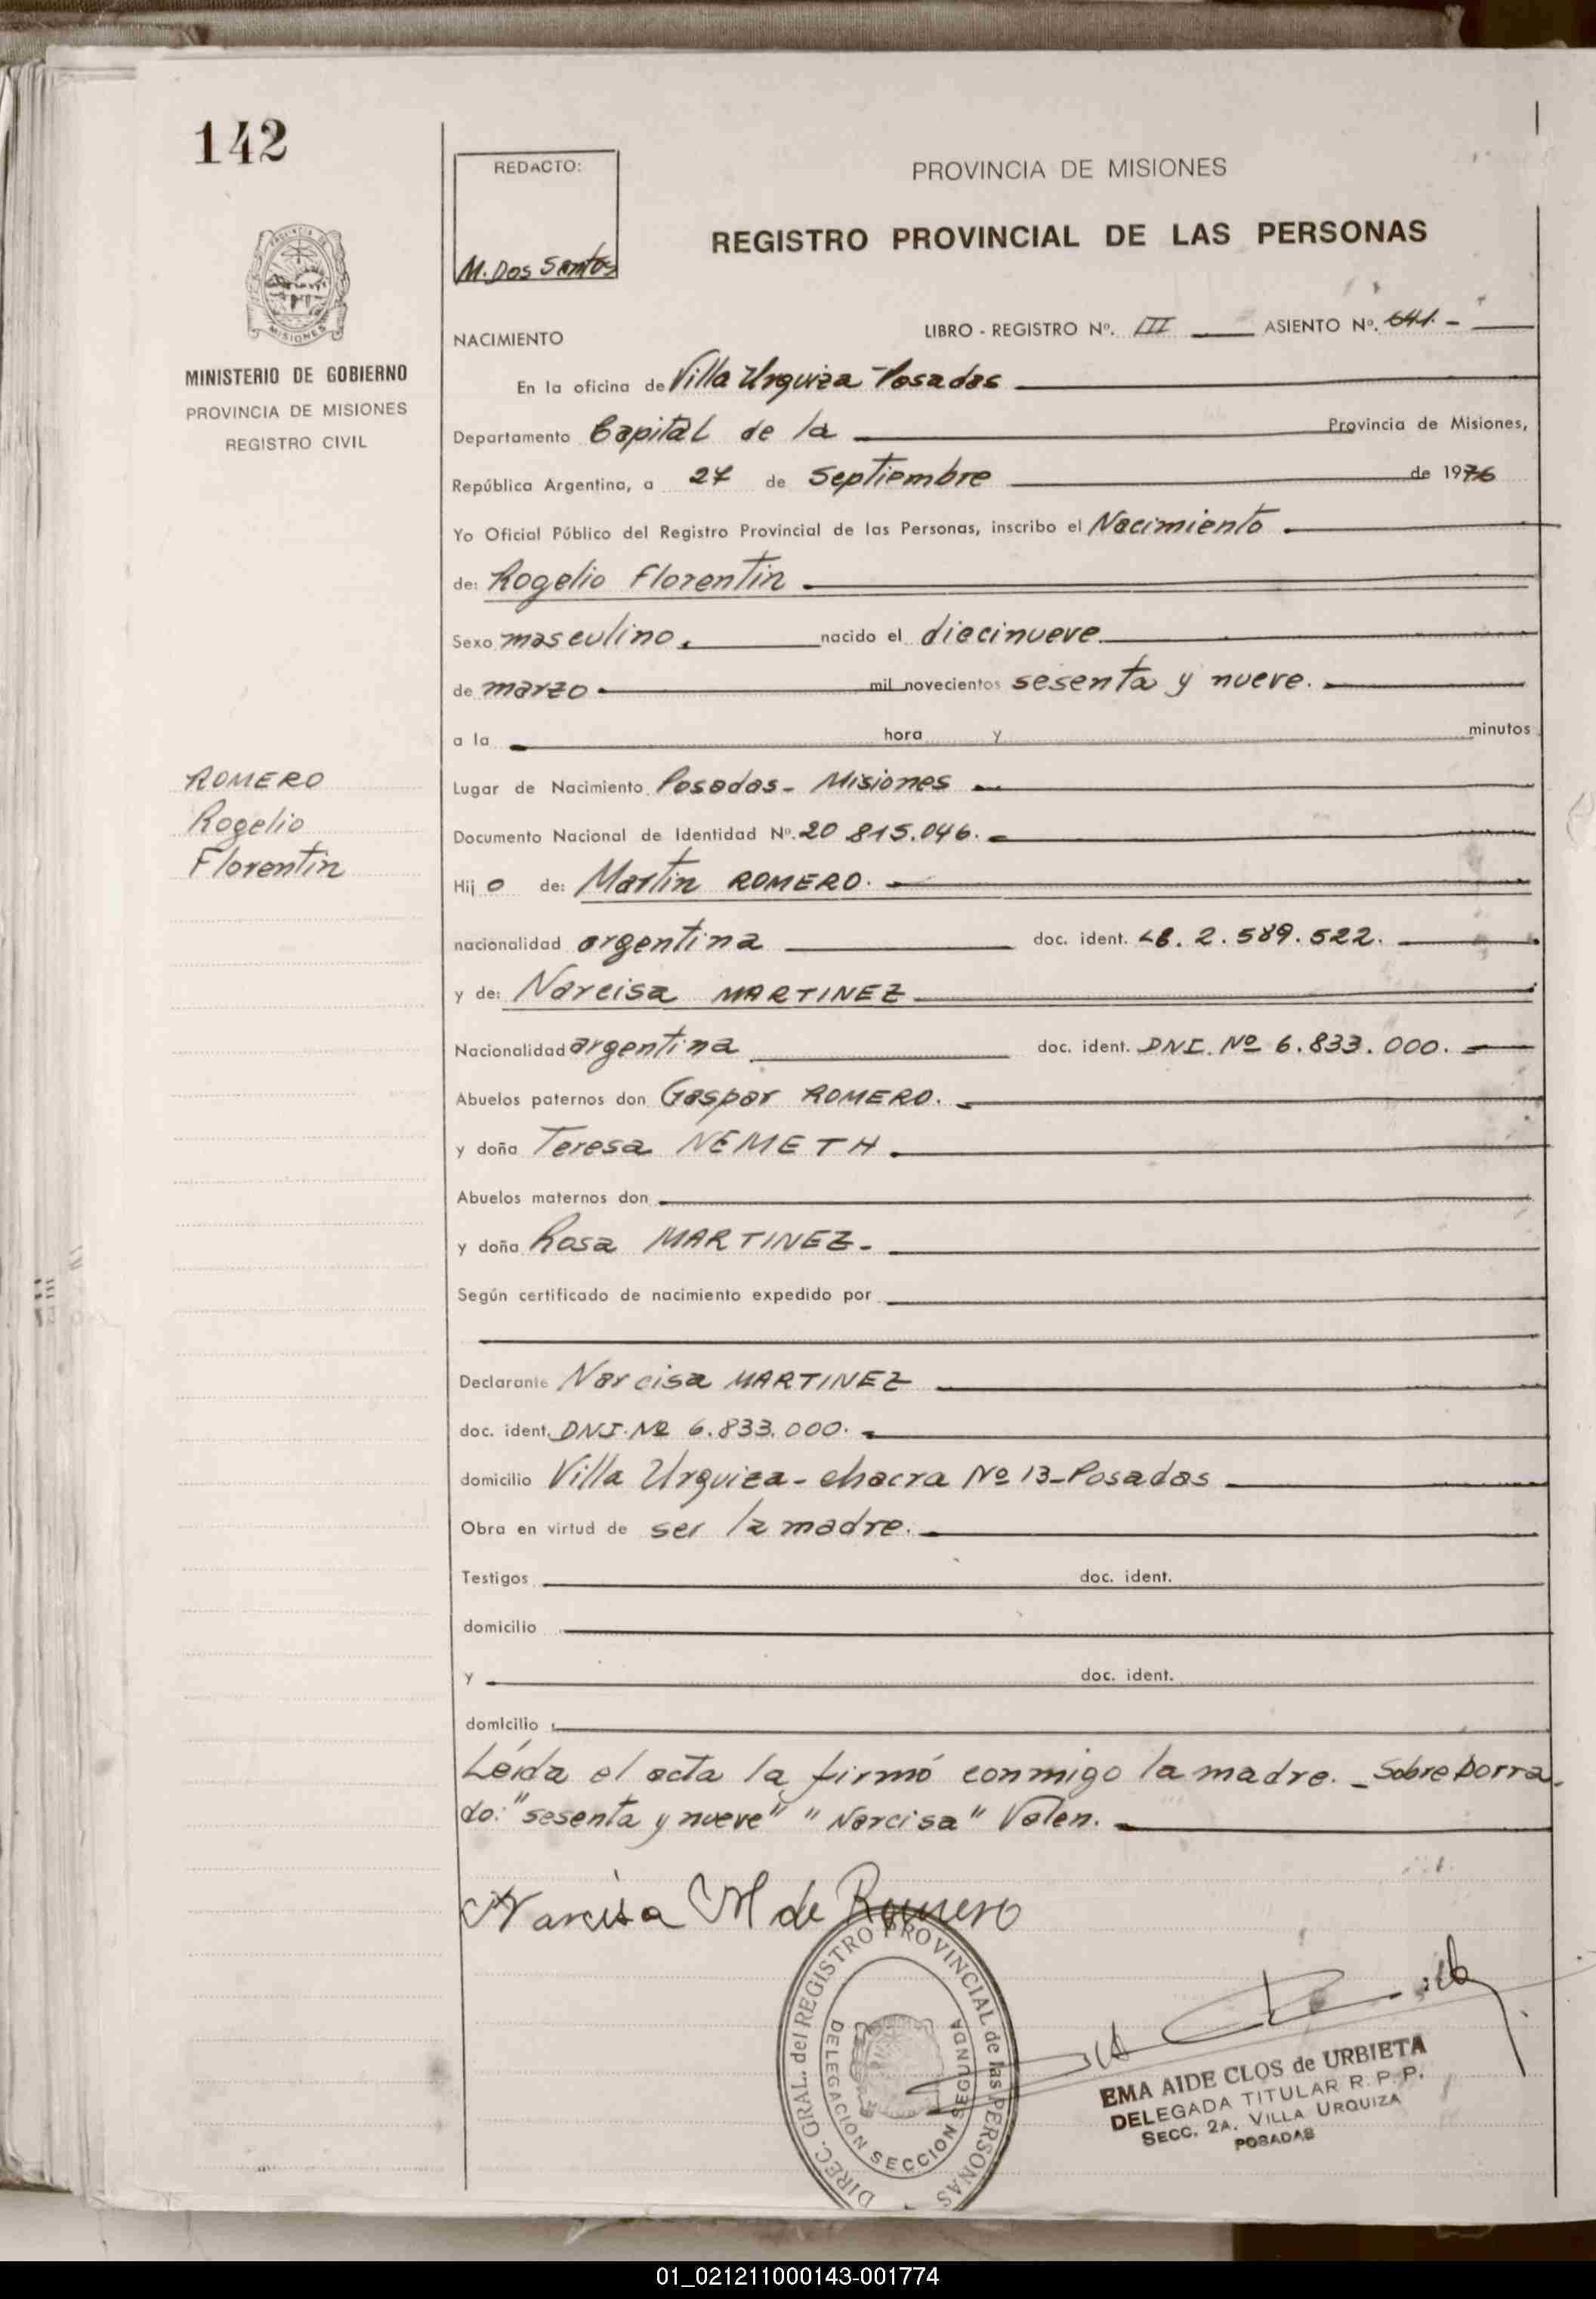 142
REDACTO:
M. Dos Santos
PROVINCIA DE MISIONES
REGISTRO PROVINCIAL DE LAS PERSONAS
MINISTERIO DE GOBIERNO
PROVINCIA DE MISIONES
REGISTRO CIVIL
NACIMIENTO
LIBRO - REGISTRO Nº. III ASIENTO Nº. 641. -
En la oficina de Villa Urquiza - Posadas
Departamento Capital de la Provincia de Misiones,
República Argentina, a 27 de Septiembre de 1976
Yo Oficial Público del Registro Provincial de las Personas, inscribo el Nacimiento
de: Rogelio Florentin
Sexo masculino. nacido el diecinueve
de marzo mil novecientos sesenta y nueve.
a la hora y minutos
ROMERO
Rogelio
Florentin
Lugar de Nacimiento Posadas - Misiones
Documento Nacional de Identidad Nº. 20 815.046.
Hij o de: Martin ROMERO.
nacionalidad argentina doc. ident. 2.589.522.
y de: Narcisa MARTINEZ
Nacionalidad argentina doc. ident. DNI. Nº 6.833.000.
Abuelos paternos don Gaspar ROMERO.
y doña Teresa NEMETH.
Abuelos maternos don
y doña Rosa MARTINEZ -
Según certificado de nacimiento expedido por
Declarante Narcisa MARTINEZ
doc. ident. DNI. Nº 6.833.000.
domicilio Villa Urquiza - chacra Nº 13 - Posadas
Obra en virtud de ser la madre.
Testigos doc. ident.
domicilio
y doc. ident.
domicilio
Leída el acta la firmó conmigo la madre. - Sobreborra-
do: "sesenta y nueve" "Narcisa" Valen.
Narcisa M de Romero
DIREC. GRAL. del REGISTRO PROVINCIAL de las PERSONAS
DELEGACION SECCION SEGUNDA
EMA AIDE CLOS de URBIETA
DELEGADA TITULAR R. P. P.
SECC. 2A. VILLA URQUIZA
POSADAS
01_021211000143-001774